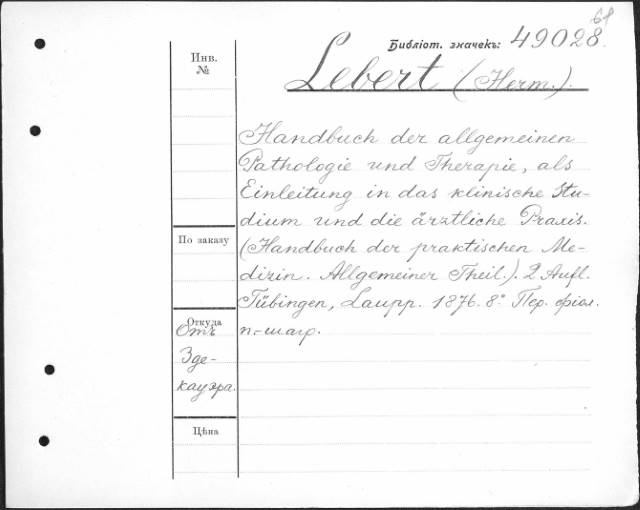 68
Библіот. значекъ: 49028.
Инв.
№
Lebert (Herm.).
Handbuch der allgemeinen
Pathologie und Therapie, als
Einleitung in das klinische Stu-
dium und die ärztliche Praxis.
По заказу
(Handbuch der praktischen Me-
dizin. Allgemeiner Theil.). 2 Aufl.
Tübingen, Laupp. 1876. 8° Пер. фіол.
Откуда
Отъ
п.-шагр.
Зде-
кауэра.
Цѣна